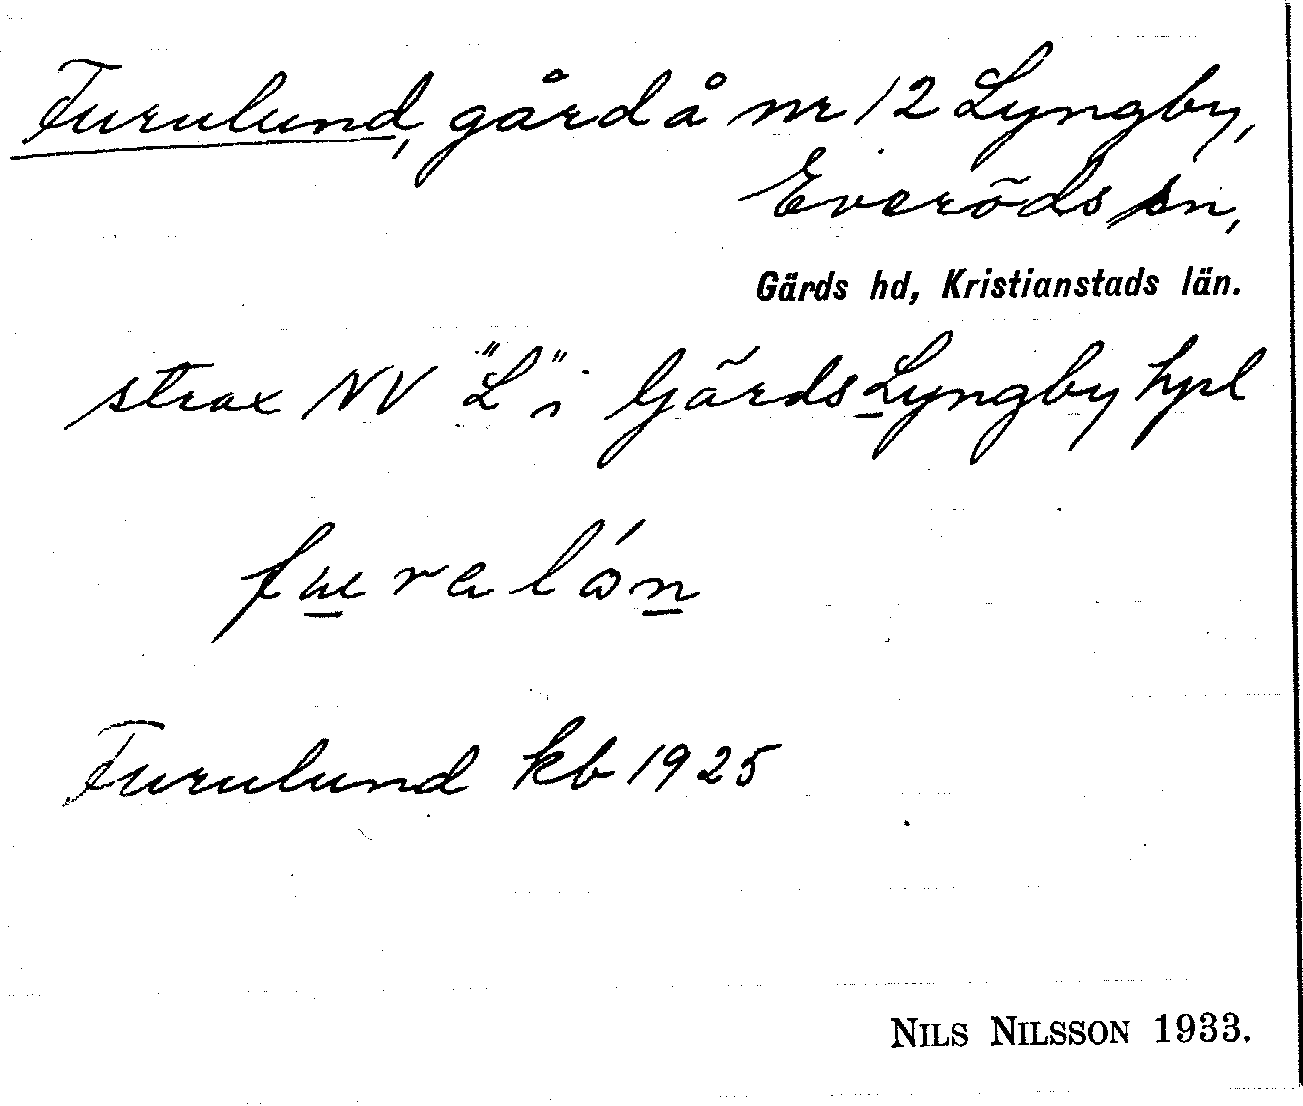 Furulund, gård å nr 12 Lyngby,
Everöds sn,
Gärds hd, Kristianstads län.
strax NV "L" i Gärds Lyngby hpl
furalón
Furulund kb 1925
NILS NILSSON 1933.